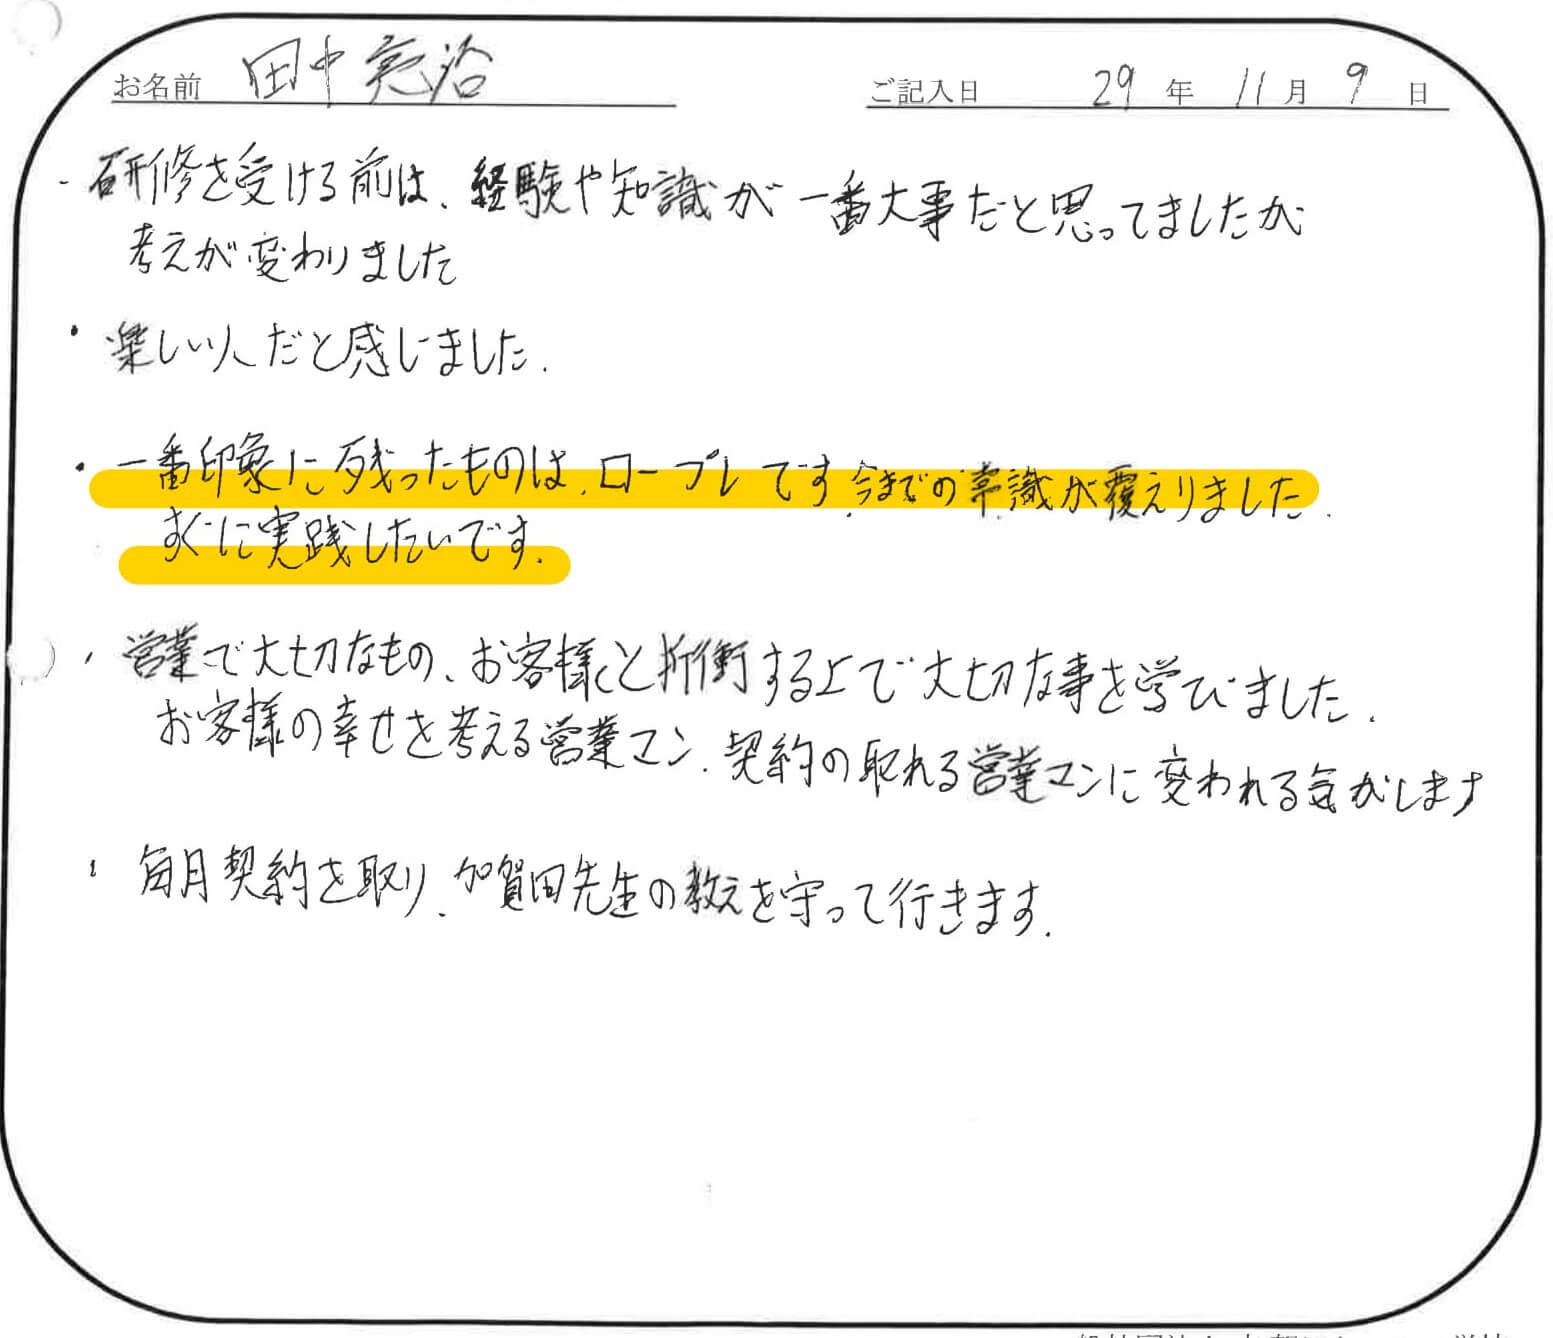 お名前 田中亮治 ご記入日 29年 11月 9日
- 研修を受ける前は、経験や知識が一番大事だと思ってましたが
考えが変わりました
・楽しい人だと感じました.
・一番印象に残ったものは、ロープレです.今までの常識が覆えりました.
すぐに実践したいです.
・営業で大切なもの、お客様と折衝する上で大切な事を学びました.
お客様の幸せを考える営業マン、契約の取れる営業マンに変われる気がします
・毎月契約を取り、加賀田先生の教えを守って行きます.